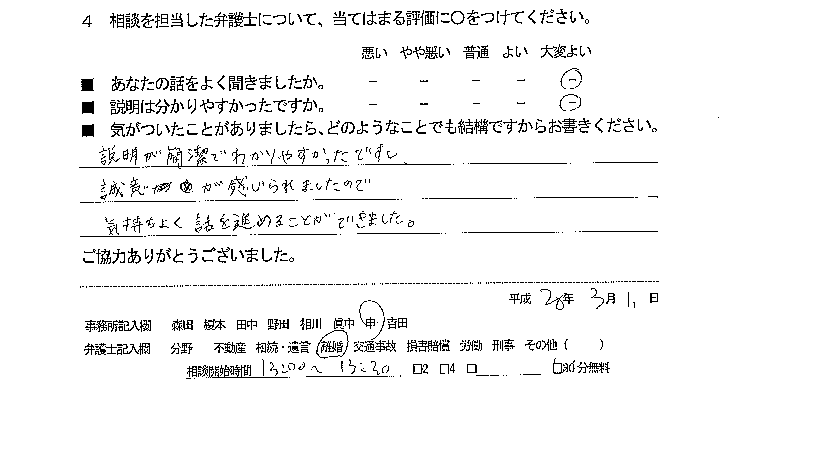 4 相談を担当した弁護士について、当てはまる評価に○をつけてください。
悪い やや悪い 普通 よい 大変よい
■ あなたの話をよく聞きましたか。 － － － － －
■ 説明は分かりやすかったですか。 － － － － －
■ 気がついたことがありましたら、どのようなことでも結構ですからお書きください。
説明が簡潔でわかりやすかったですし、
誠意が感じられましたので
気持ちよく話を進めることができました。
ご協力ありがとうございました。
平成 28年 3月 1, 日
事務所記入欄 森田 榎本 田中 野田 相川 眞中 申 吉田
弁護士記入欄 分野 不動産 相続・遺言 離婚 交通事故 損害賠償 労働 刑事 その他（ ）
相談開始時間 13:00〜 13:30 □2 □4 □ □30分無料